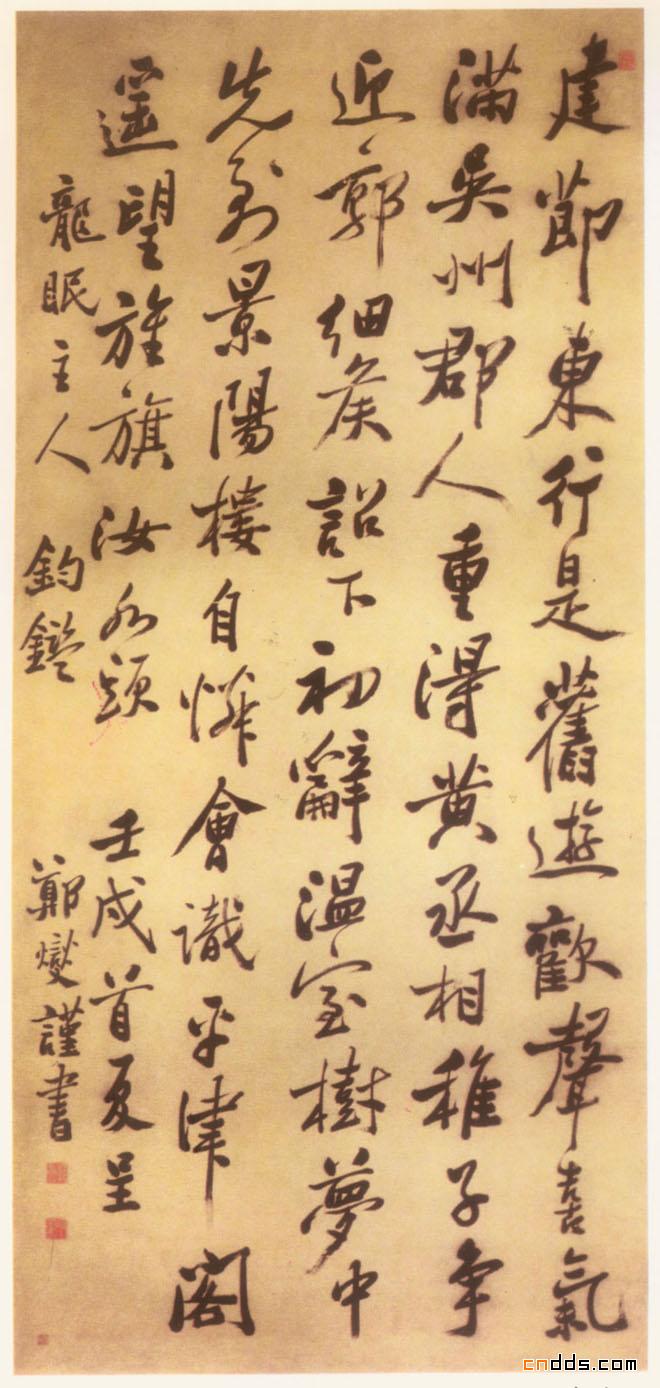 建節東行是舊遊歡聲喜氣
滿吳州郡人重得黃丞相稚子争
近郭細侯詔下初辭溫室樹夢中
先到景陽樓自憐會識平津閣
遥望旌旗汝水頭 壬戌首夏呈
龍眠主人 鈞鑒 鄭燮謹書
cndds.com